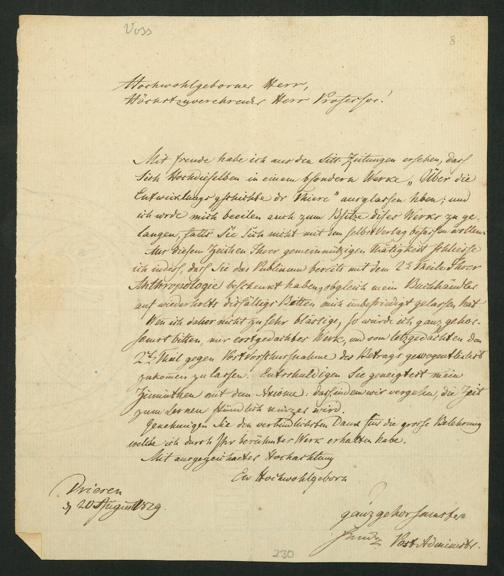 Voss
8
Hochwohlgeborner Herr,
Höchstzuverehrender Herr Professor!
Mit Freude habe ich aus den Litt. Zeitungen ersehen, daß
Sich Hochdieselben in einem besondern Werke „Über die
Entwicklungsgeschichte der Thiere“ ausgelassen haben; und
ich werde mich beeilen auch zum Besitze dieses Werks zu ge-
langen, falls Sie Sich nicht mit dem Selbstverlag befassen wollen.
Aus diesem Zeichen Ihrer gemeinnützigen Thätigkeit schließe
ich indeß, daß Sie das Publicum bereits mit dem 2n Theile Ihrer
Anthropologie beschenkt haben, obgleich mein Buchhändler
auf wiederholte dießfällige Bitten mich unbefriedigt gelassen hat.
Wenn ich daher nicht zu sehr belästige, so würde ich ganz gehor-
samst bitten, mir erstgedachtes Werk, und vom letztgedachten den
2n Theil gegen Postvorschußnahme des Betrags gewogentlichst
zukommen zu lassen. Entschuldigen Sie geneigtest mein
Zumuthen mit dem daß wir vergehen, die Zeit
zum Lernen stündlich kürzer wird.
Genehmigen Sie den verbindlichsten Dank für die große Belehrung
welche ich durch Ihr berühmtes Werk erhalten habe.
Mit ausgezeichneter Hochachtung
Ew Hochwohlgeborn
20 August 1829.
ganz gehorsamster
Post Administr.
230